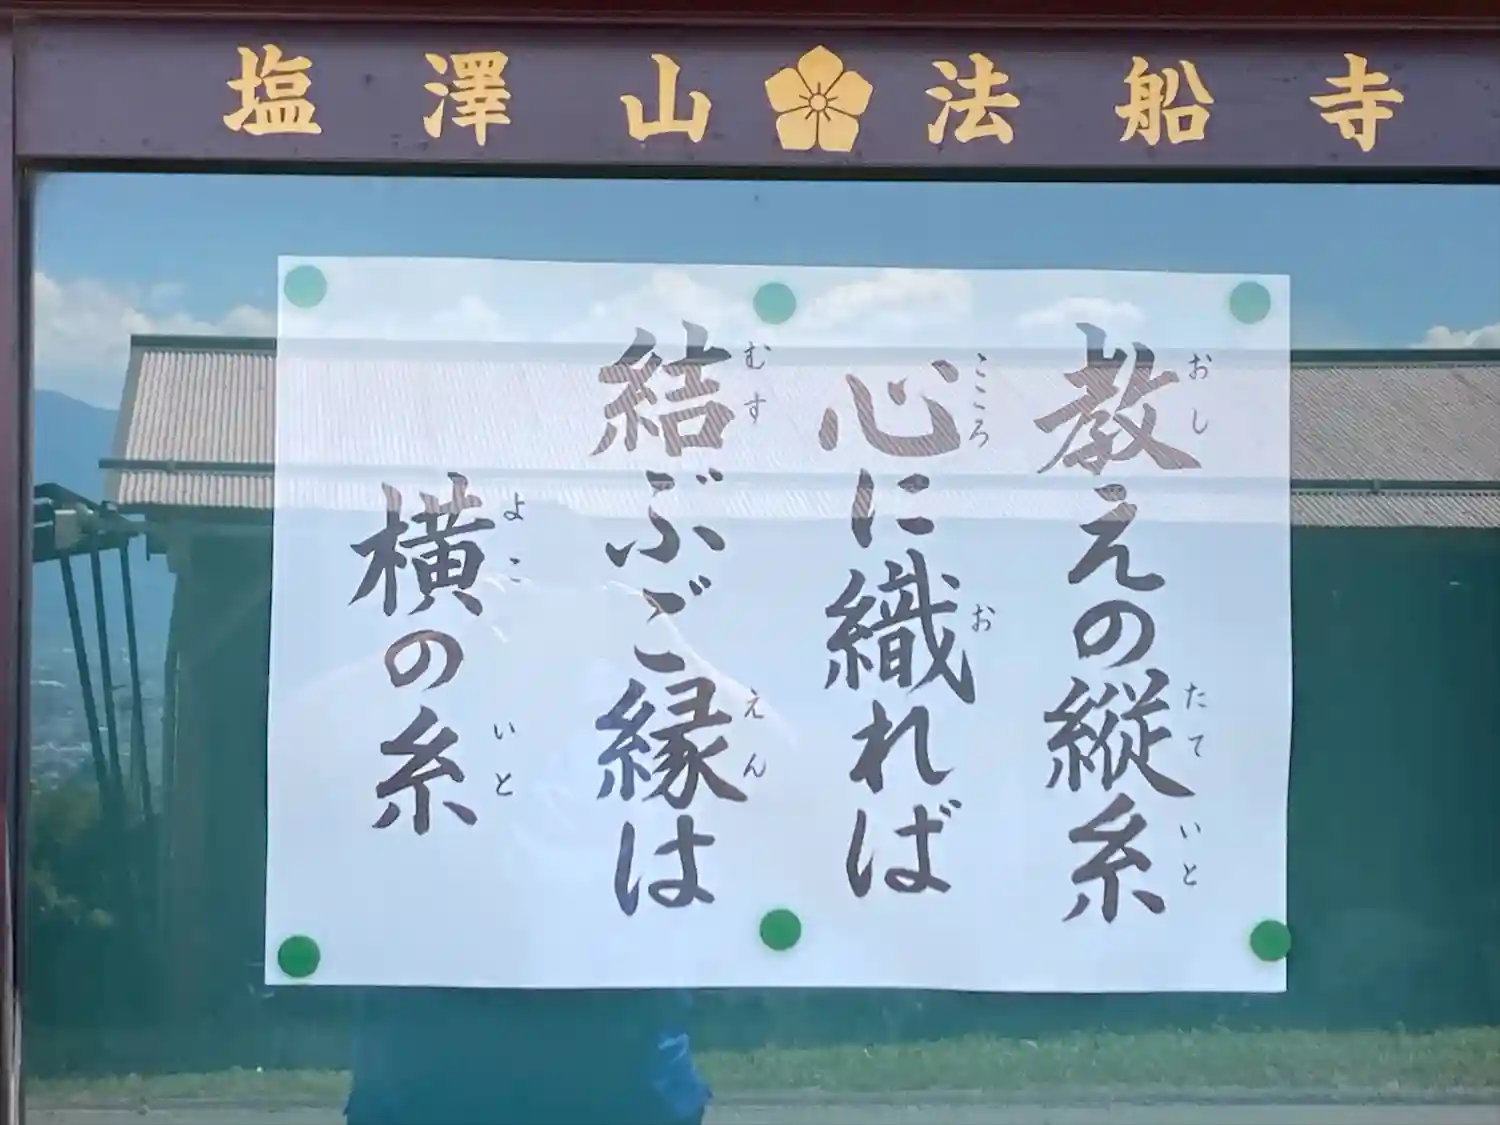 塩澤山法船寺
教えの縦糸
心に織れば
結ぶご縁は
横の糸
おし
たていと
こころ
お
むす
えん
よこ
いと